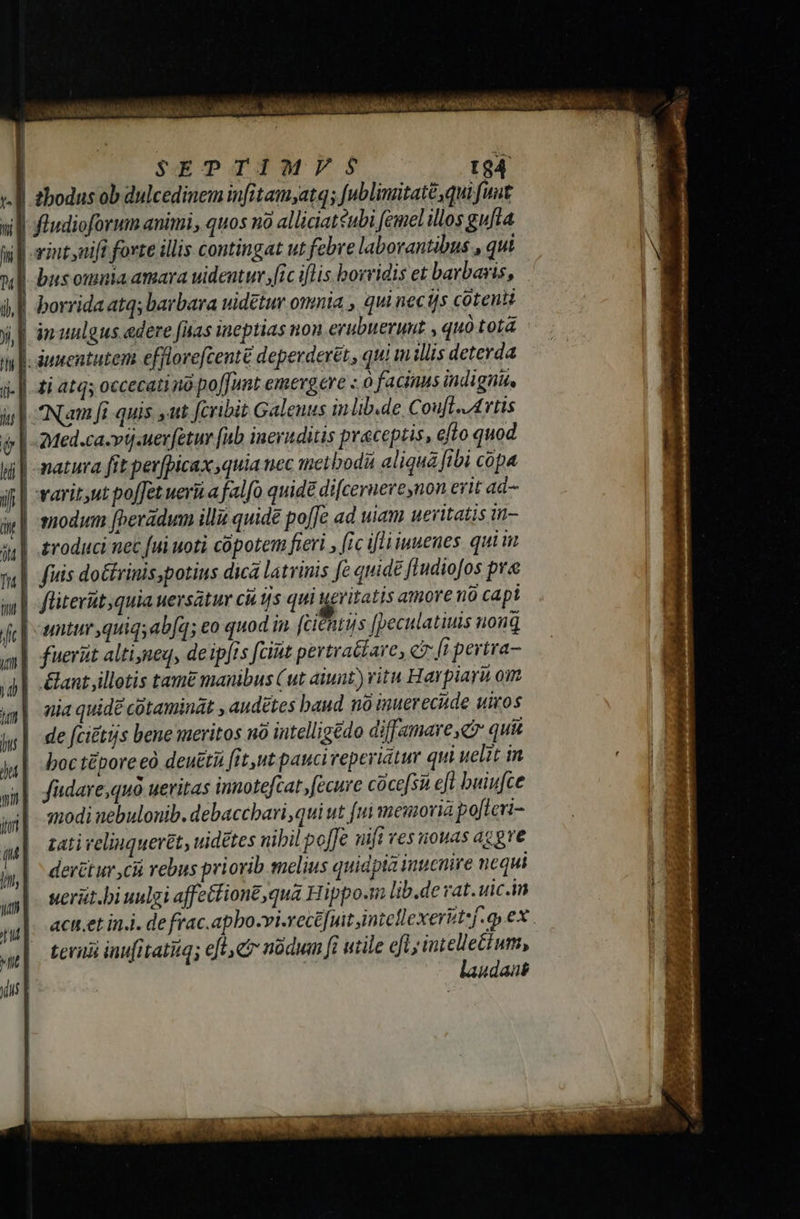 SEPTIMVS 184
thodus ob dulcedinem insitam,atq; sublimitatē,qui sunt
studiosorum animi, quos nō alliciat? ubi semel illos gusta
uerint,nisi forte illis contingat ut febre laborantibus, qui
bus omnia amara uidentur,sic istis horridis et barbaris,
horrida atq; barbara uidētur omnia, qui nec ijs cōtenti
in uulgus ædere suas ineptias non erubuerunt, quò totā
iuuentutem efflorescentē deperderēt, qui in illis deterda
ti atq; occecati nō possunt emergere: ò facinus indignū.
Nam si quis,ut scribit Galenus in lib.de Const.Artis
Med.ca.vij.uersetur sub ineruditis præceptis, esto quod
natura sit perspicax,quia nec methodū aliquā sibi cōpa
rarit,ut posset uerū a falso quidē discernere,non erit ad-
modum sperādum illū quidē posse ad uiam ueritatis in-
troduci nec sui uoti cōpotem fieri, sic isti iuuenes qui in
suis doctrinis,potius dicā latrinis se quidē studiosos præ
stiterūt,quia uersātur cū ijs qui ueritatis amore nō capi
untur,quiq;absq; eo quod in scientijs speculatiuis nonq̄
fuerūt alti,neq, de ipsis sciūt pertractare, & si pertra-
ctant,illotis tamē manibus (ut aiunt) ritu Harpiarū om
nia quidē cōtaminăt, audētes haud nō inuerecūde uiros
de sciētijs bene meritos nō intelligēdo diffamare,& quū
hoc tēpore eò deuētū sit,ut pauci reperiātur qui uelit in
sudare,quò ueritas innotescat,secure cōcessū est huiusce
modi nebulonib. debacchari,qui ut sui memoriā posteri-
tati relinquerēt, uidētes nihil posse nisi res nouas aggre
derētur,cū rebus priorib. melius quidpiā inuenire nequi
uerūt.hi uulgi affectionē,quā Hippo.in lib.de rat.uic.in
acu.et in.i. de frac.apho.vi.recēsuit,intellexerūt f. q̨ ex
ternū inusitatūq; est,& nōdum si utile est, intellectum,
laudant